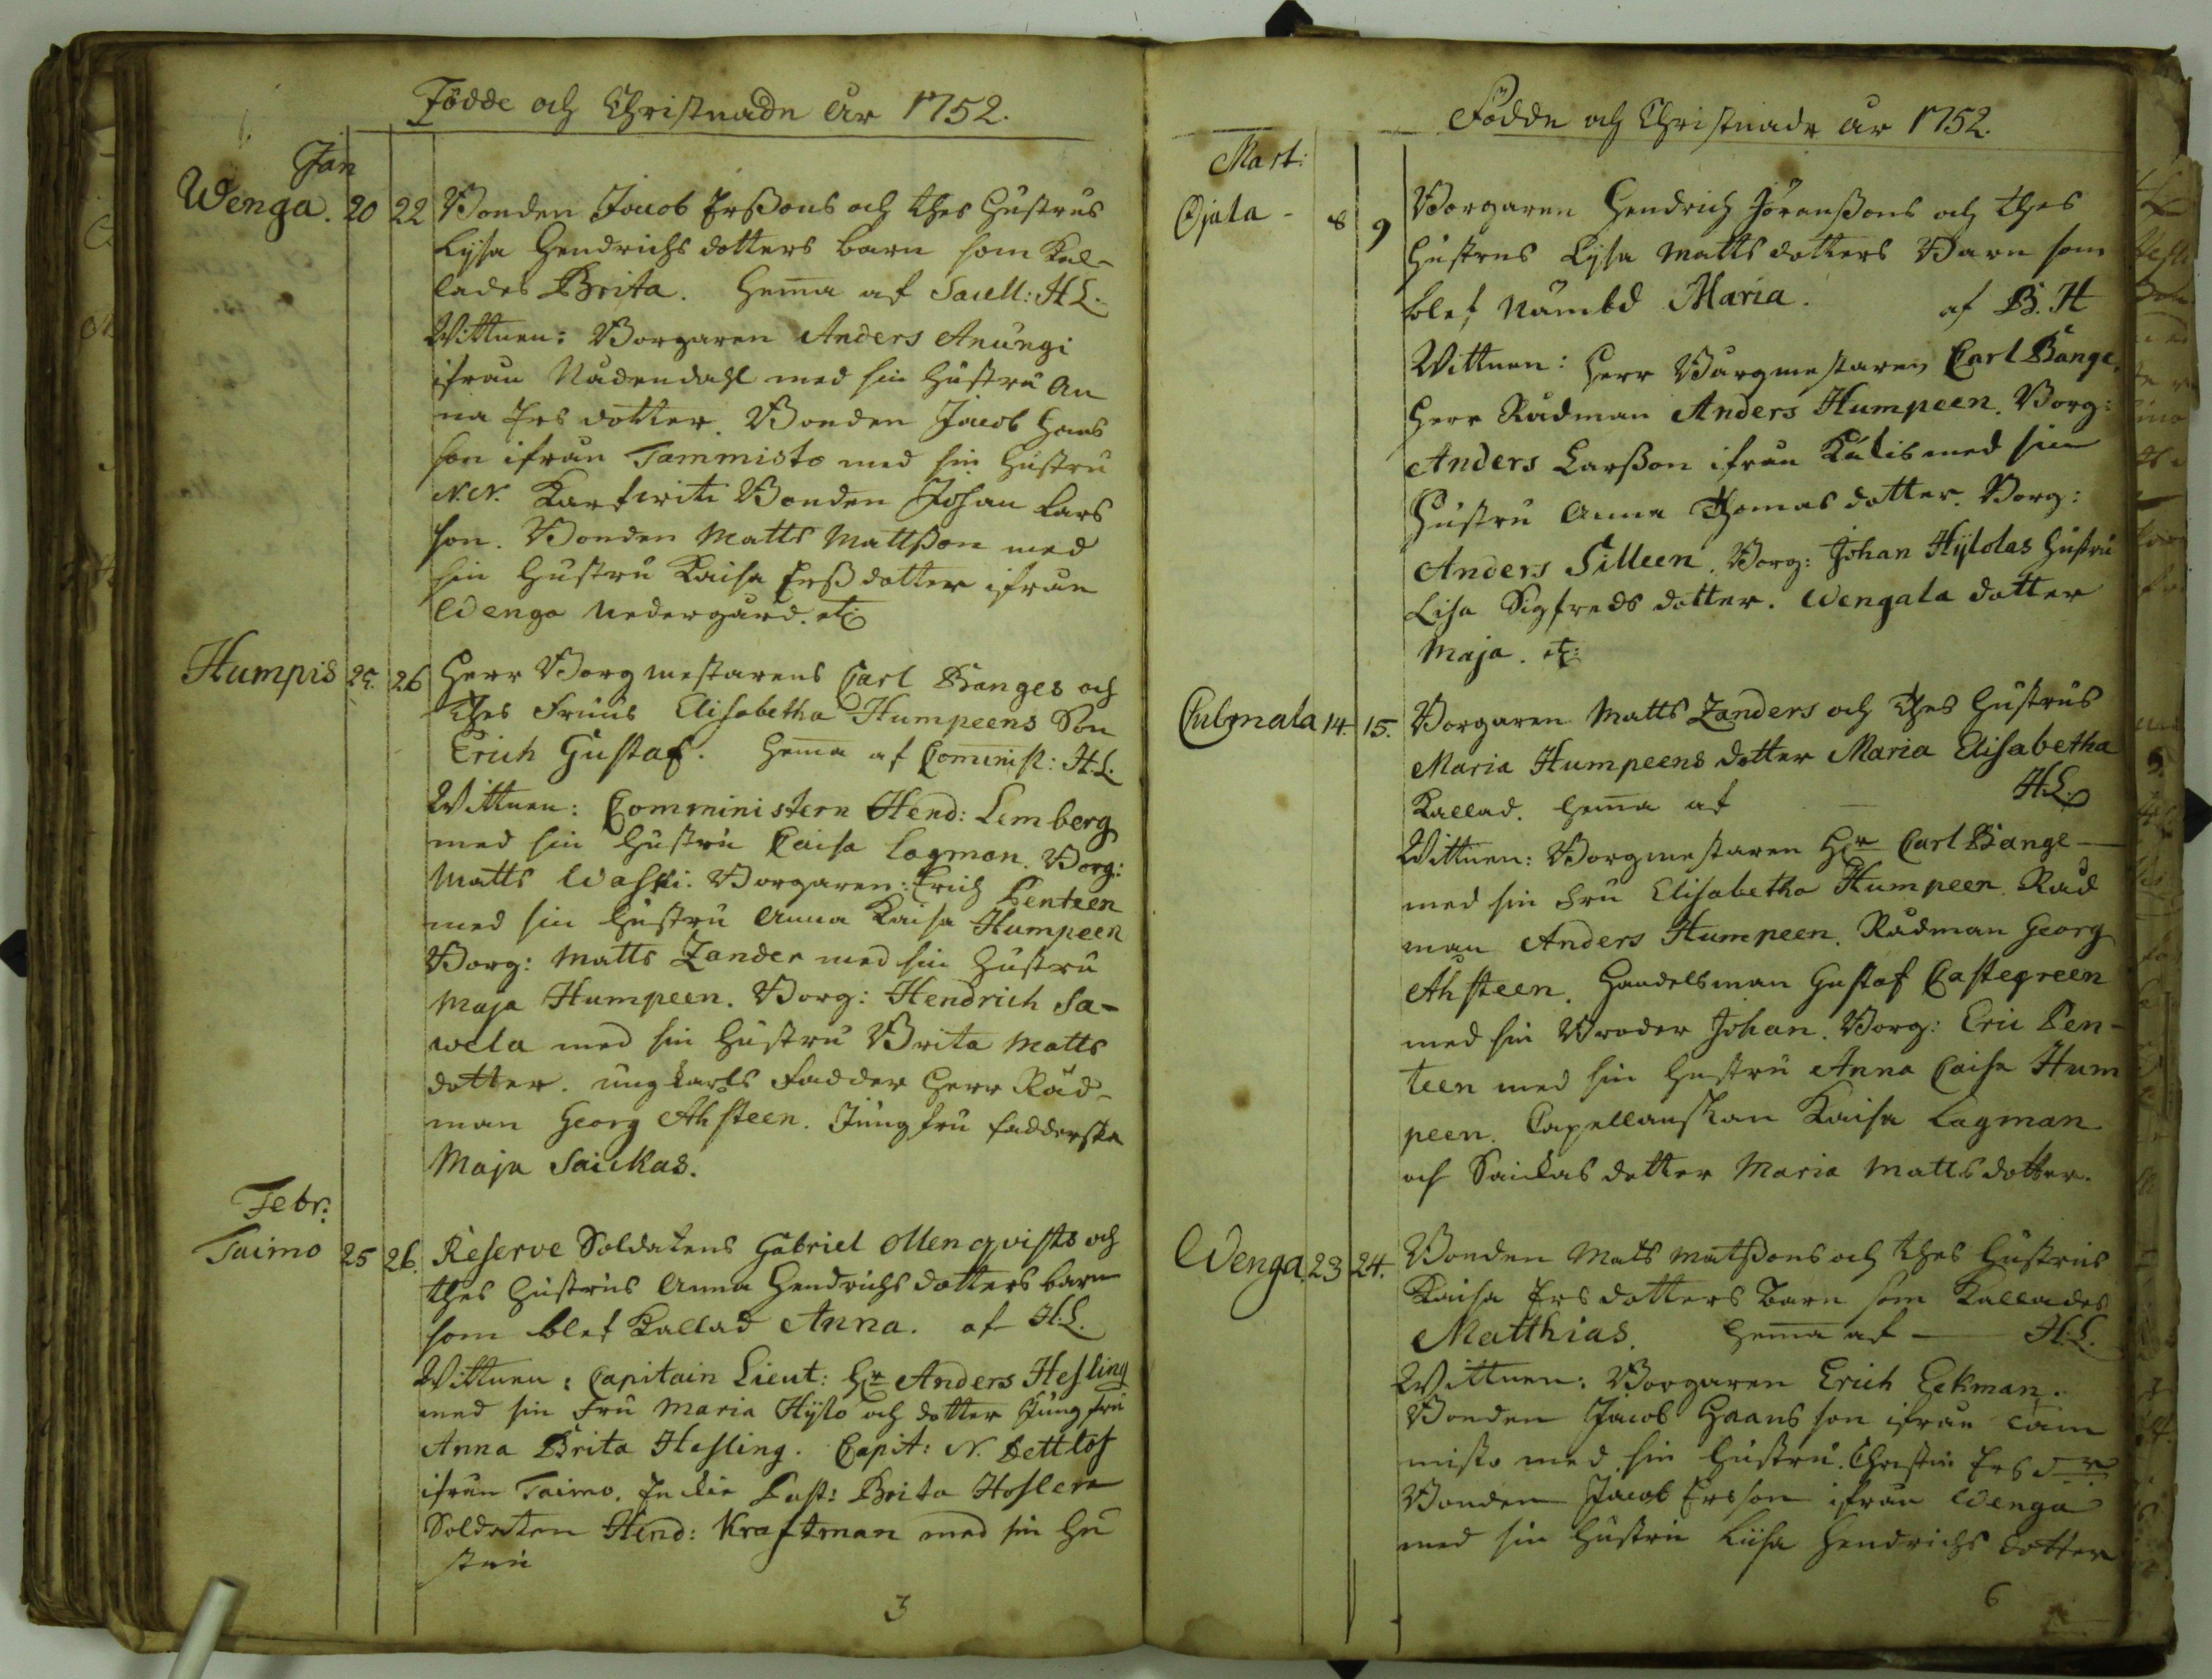 Födde och Christnade År 1752.
Jan
Wenga. 20 22 Bonden Jacob Erßons och thes Hustrus
Lysa Hendrichs dotters barn som Kal-
lades Brita. Hema af Sacell: H L.
Wittnen: Borgaren Anders Anungi
ifrån Nådendahl med sin Hustru An
na Ers dotter. Bonden Jacob Hans
son ifrån Tammisto med sin Hustru
N.N. Bonden Johan Lars
son. Bonden Matts Mattßon med
sin Hustru Kaisa Erß dotter ifrån
Wenga Nedergård. etc
Humpis 25. 26 Herr Borgmestarens Carl Bånges och
thes Fruus Elisabetha Humpeens Son
Erich Gustaf. Hema af Cominist: H.L.
Wittnen: Comministern Hend: Lemberg
med sin Hustru Caisa Lagman. Borg:
Matts Waski. Borgaren: Erich Penteen
med sin Hustru Anna Kaisa Humpeen
Borg: Matts Zander med sin Hustru
Maja Humpeen. Borg: Hendrich Sa-
wela med sin Hustru Brita Matts
dotter. ungkarls Fadder Herr Råd-
man Georg Ahsteen. Jungfru fadderska
Maja Saickas.
Febr:
Taimo 25 26. Reserve Soldatens Gabriel Ollenqvists och
thes Hustrus Anna Hendrichs dotters barn
som blef Kallad Anna. af H.L.
Wittnen: Capitain Lieut: Hr Anders Hesling
med sin Fru Maria Hylo och dotter Jungfru
Anna Brita Hesling. Capit: N. Dettlof
ifrån Taimo. Past: Brita
Soldaten Hend: Kraftman med sin Hu
stru
3
Födde och Christnade år 1752.
Mart:
Ojala - 8 9 Borgaren Hendrich Jöranßons och thes
Hustrus Lysa Matts dotters Barn som
blef Nämbd Maria. af B. H
Wittnen: Herr Borgmestaren Carl Bånge,
Herr Rådman Anders Humpeen. Borg:
Anders Larßon ifrån Kälis med sin
Hustru Anna Thomas dotter. Borg:
Anders Silleen. Borg: Johan Hylolas Hustru
Lisa Sigfreds dotter. Wengala dotter
Maja. etc:
14. 15. Borgaren Matts Zanders och thes Hustrus
Maria Humpeens dotter Maria Elisabetha
Kallad. Hema af H.L.
Wittnen: Borgmestaren Hr Carl Bånge
med sin Fru Elisabetha Humpeen. Råd
man Anders Humpeen. Rådman Georg
Ahsteen. Handelsman Gustaf Castegreen
med sin Broder Johan. Borg: Eric Pen-
teen med sin Hustru Anna Caisa Hum
peen. Capellanskan Kaisa Lagman
och Saickas dotter Maria Mattsdotter.
Wenga 23 24. Bonden Mats Matßons och thes Hustrus
Kaisa Ers dotters Barn som Kallades
Matthias. Hema af H.L.
Wittnen: Borgaren Erich Eckman.
Bonden Jacob Haans son ifrån Tam
misto med sin Hustru. Christin Ers dr
Bonden Jacob Ersson ifrån Wenga
med sin Hustru Liisa Hendrichs dotter
6